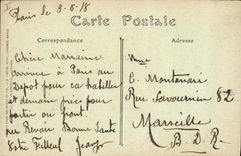 Paris le 9-6-18
Carte Postale
Correspondance
Adresse
Chère Marraine
arrivé à Paris au
Depot pour ca habiller
et demain près pour
partir au front
au Revoir Bonne Santé
Votre Filleul
Mme
C. Montanari
Rue 82
Marseille
B. D. R.